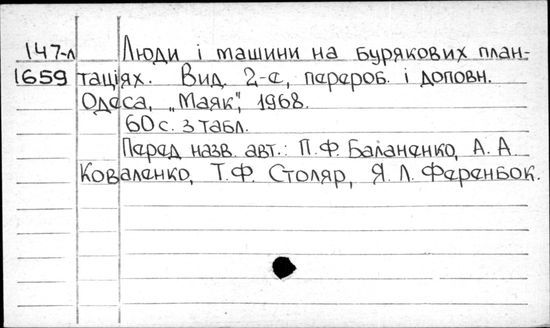 147-л Люди і машини на бурякових план-
1659 таціях. Вид. 2-е, перероб. і доповн.
Одеса, „Маяк", 1968.
60 с. з табл.
Перед назв. авт.: П. Ф. Баланенко, А. А.
Коваленко, Т. Ф. Столяр, Я. Л.Ференбок.